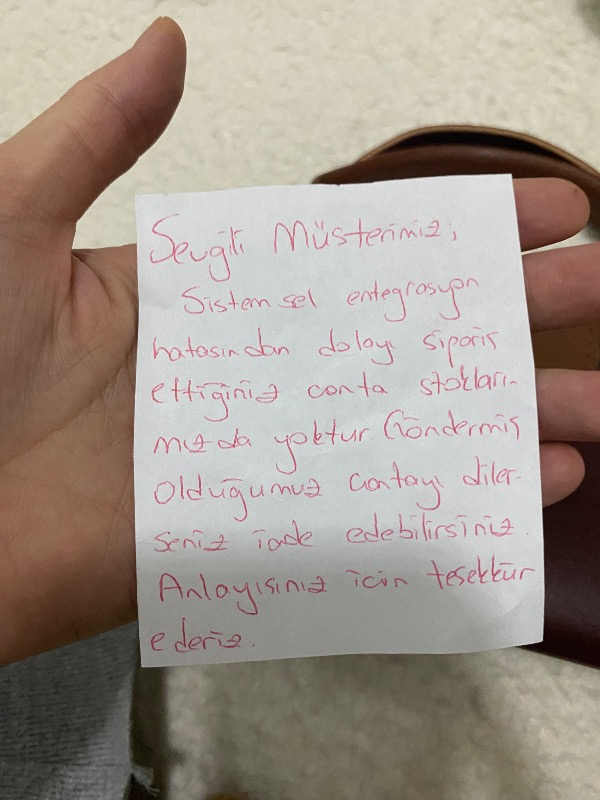 Sevgili Müsterimiz;
Sistemsel entegrasyon
hatasından dolayı siparis
ettiğiniz canta stokları-
mızda yoktur. Göndermis
Olduğumuz cantayı diler-
seniz iade edebilirsiniz.
Anlayısınız icin tesekkür
ederiz.